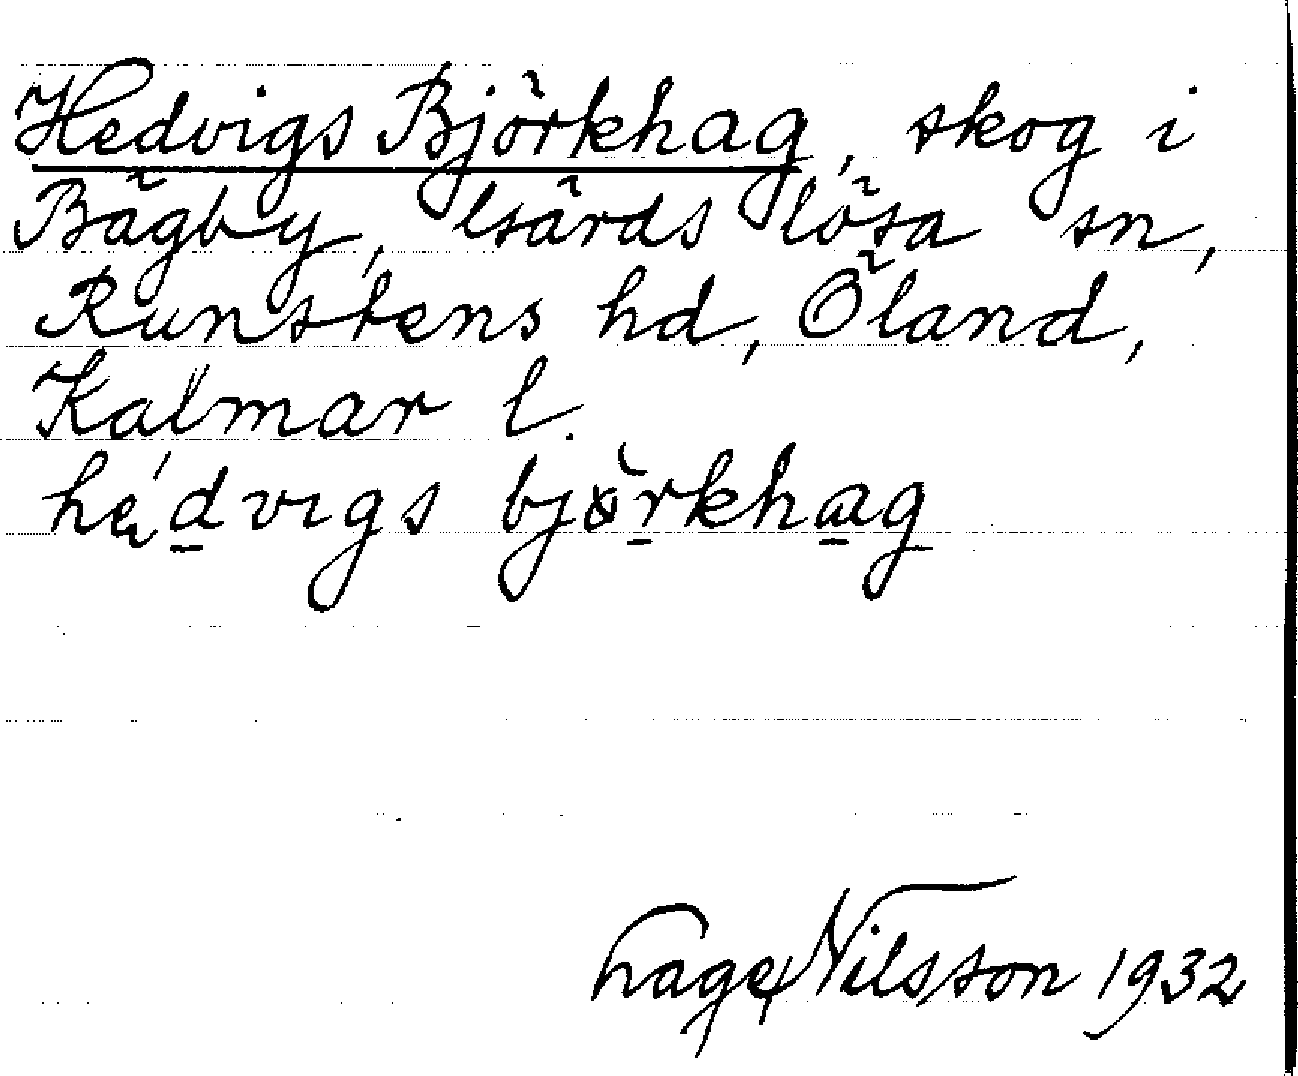 Hedvigs Björkhag, skog i
Bägby, Gärdslösa sn,
Runstens hd, Öland,
Kalmar l.
he̢ʹd̲vıgs bjɷ̀r̲kha̲g
Nilsson 1932